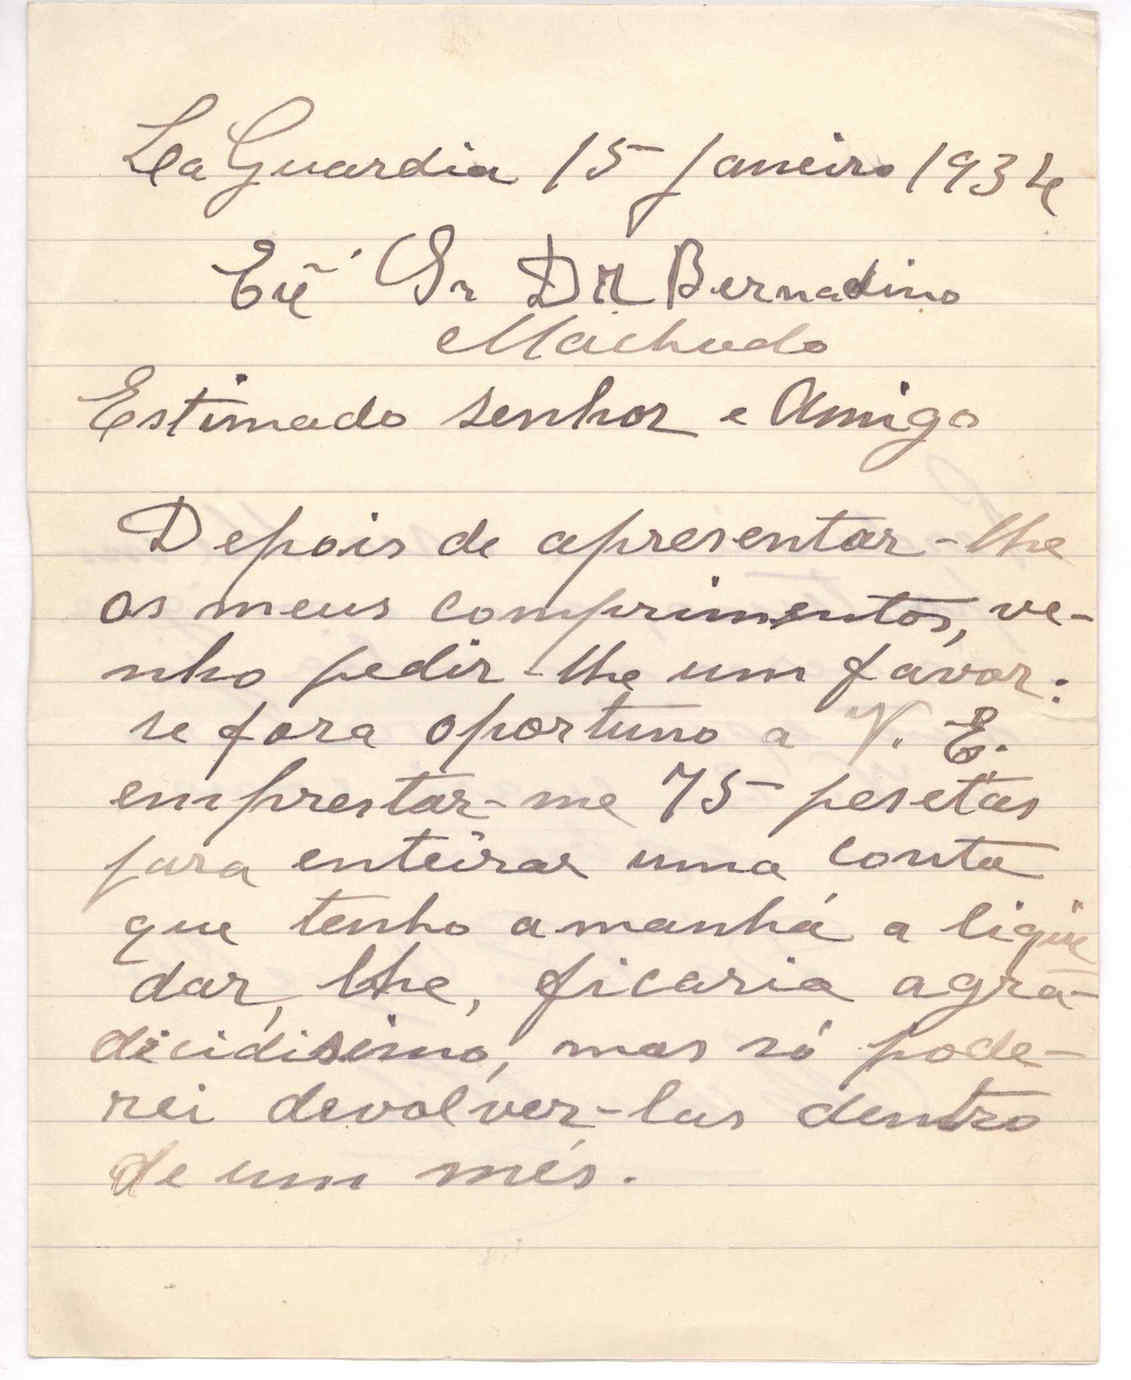 La Guardia 15 Janeiro 1934
Exᵐº Sr DR Bernadino
Machado
Estimado senhor e Amigo
Depois de apresentar-lhe
os meus comprimentos, ve-
nho pedir-lhe um favor:
se fora oportuno a V. E.
emprestar-me 75 pesetas
para enteirar uma conta
que tenho amanhá a liqüe
dar, lhe, ficaria agra-
dicidisimo, mas só pode-
rei devolver-las dentro
de um més.